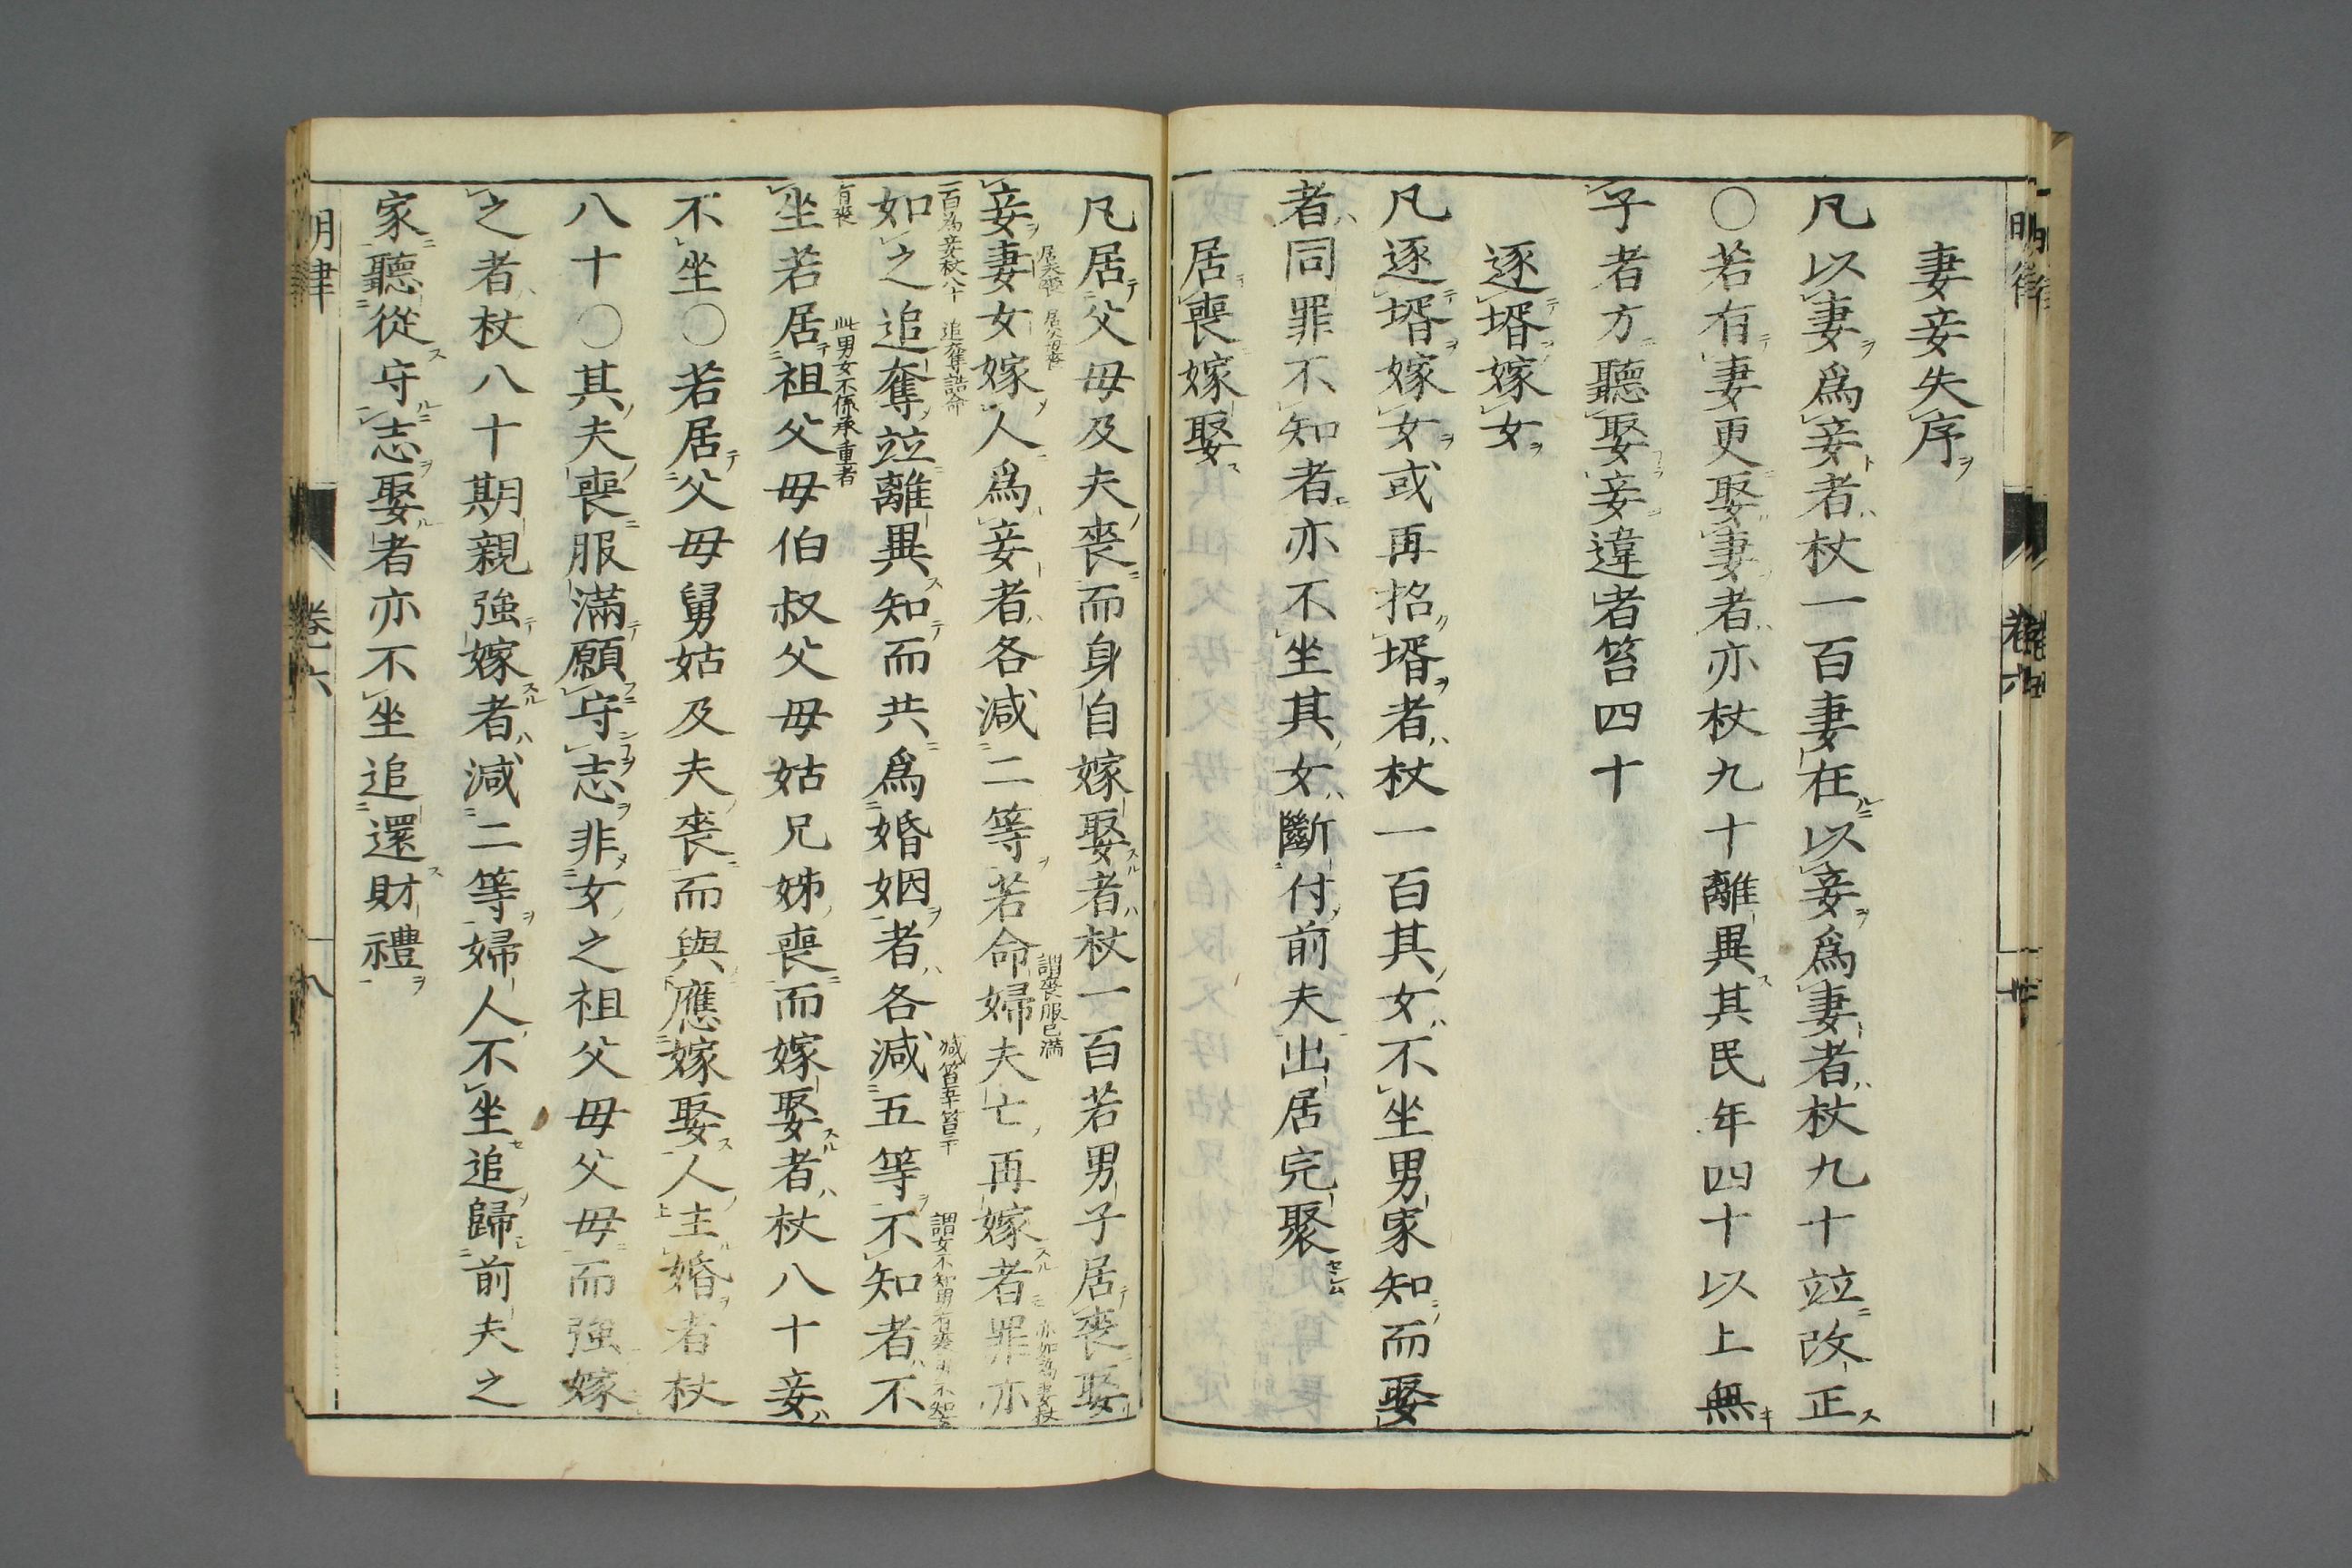 妻妾失序
凡以妻爲妾者杖一百妻在以妾爲妻者杖九十竝改正
○若有妻更娶妻者亦杖九十離異其民年四十以上無
子者方聽娶妾違者笞四十
逐壻嫁女
凡逐壻嫁女或再招壻者杖一百其女不坐男家知而娶
者同罪不知者亦不坐其女斷付前夫出居完聚
居喪嫁娶
凡居父母及夫喪而身自嫁娶者杖一百若男子居喪娶
居夫喪 居父母喪 謂喪服已滿
妾妻女嫁人爲妾者各減二等若命婦夫亡再嫁者罪亦
一百為妾杖八十 追奪誥命
如之追奪竝離異知而共爲婚姻者各減五等不知者不
坐若居祖父母伯叔父母姑兄姊喪而嫁娶者杖八十妾
有喪 此男女不係承重者
不坐○若居父母舅姑及夫喪而與應嫁娶人主婚者杖
八十○其夫喪服滿願守志非女之祖父母父母而強嫁
之者杖八十期親強嫁者減二等婦人不坐追歸前夫之
家聽從守志娶者亦不坐追還財禮
明律
卷六